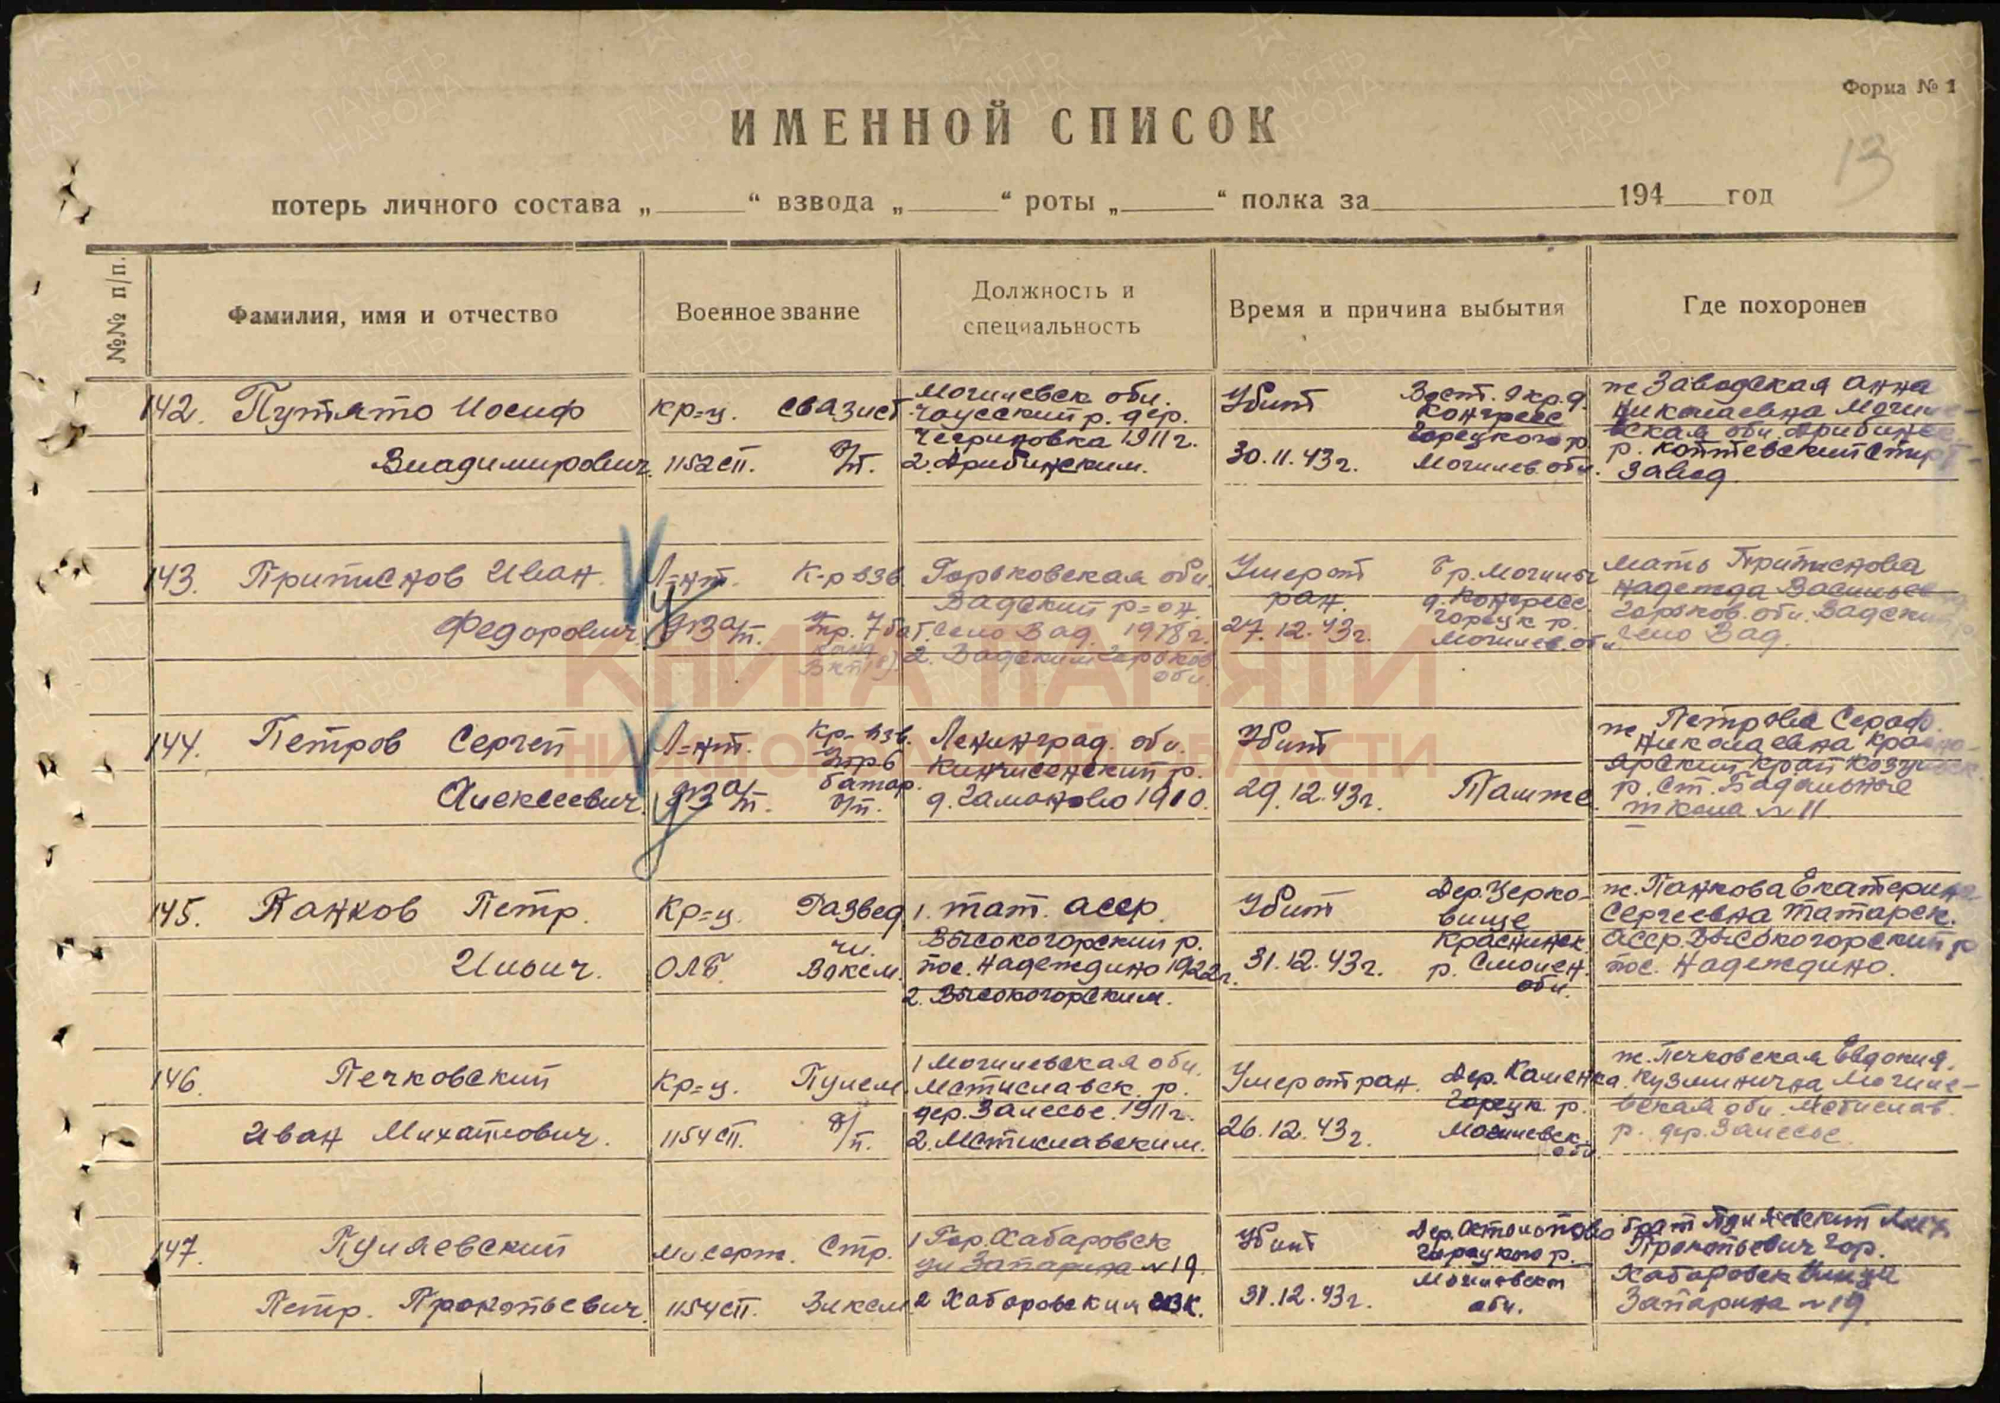 Форма № 1
13
ИМЕННОЙ СПИСОК
потерь личного состава „ “ взвода „ “ роты „ “ полка за 194 год
№№ п/п.
Фамилия, имя и отчество
Военное звание
Должность и специальность
Время и причина выбытия
Где похоронен
142. Путято Иосиф
Владимирович
кр-ц. связист
1152 сп. б/п.
Могилевск обл.
Чаусский р. дер.
1911 г.
2. Дрибинским.
Убит
30.11.43 г.
Конгресс
Горецкого р.
Могилев. обл.
ж Заводская Анна
Николаевна Могиле-
вская обл. Дрибинск
завод
143. Притыснов Иван
Федорович
Л-нт. К-р взв.
Горьковская обл.
Вадский р-он
село Вад. 1918 г.
2. Вадским Горьков
обл.
Умер от
ран.
27.12.43 г.
д. Конгресс
Горецк р.
Могилев. обл.
Мать Притыснова
Надежда Васильев
Горьков. обл. Вадский
село Вад.
144. Петров Сергей
Алексеевич
Л-нт. Кр- взв.
батар.
б/п.
Ленинград. обл.
Кингисепский р.
1910.
Убит
29.12.43 г. Там же
ж Петрова Сераф.
Николаевна Красно-
ярский край
школа № 11
145. Панков Петр
Ильич.
Кр-ц. Развед
ч.
ОЛБ Влксм.
1. Тат. асср.
Высокогорский р.
пос. Надеждино 1922 г.
2. Высокогорским.
Убит
31.12.43 г.
Дер. Церко-
вище
Краснинск
р. Смолен.
обл.
ж. Панкова Екатерина
Сергеевна Татарск.
асср. Высокогорский р
пос. Надеждино.
146. Печковский
Иван Михайлович.
Кр-ц. Пулем
1154 сп. б/п.
1 Могилевская обл.
Мстиславск. р.
дер. Залесье. 1911 г.
2. Мстиславским.
Умер от ран.
26.12.43 г.
Дер. Каменка.
Горецк р.
Могилевск.
обл.
ж. Печковская Евдокия.
Кузминична Могиле-
вская обл. Мстислав.
р. дер. Залесье
147. Пуляевский
Петр. Прокопьевич
мл серж. Стр.
1154 сп. Влксм
1 Гор. Хабаровск
ул Запарина № 19.
2 Хабаровским
Убит
31.12.43 г.
Горецкого р.
Могилевск
обл.
брат Пуляевский
Прокопьевич гор.
Хабаровск улица
Запарина № 19
КНИГА ПАМЯТИ
НИЖЕГОРОДСКОЙ ОБЛАСТИ
ПАМЯТЬ НАРОДА